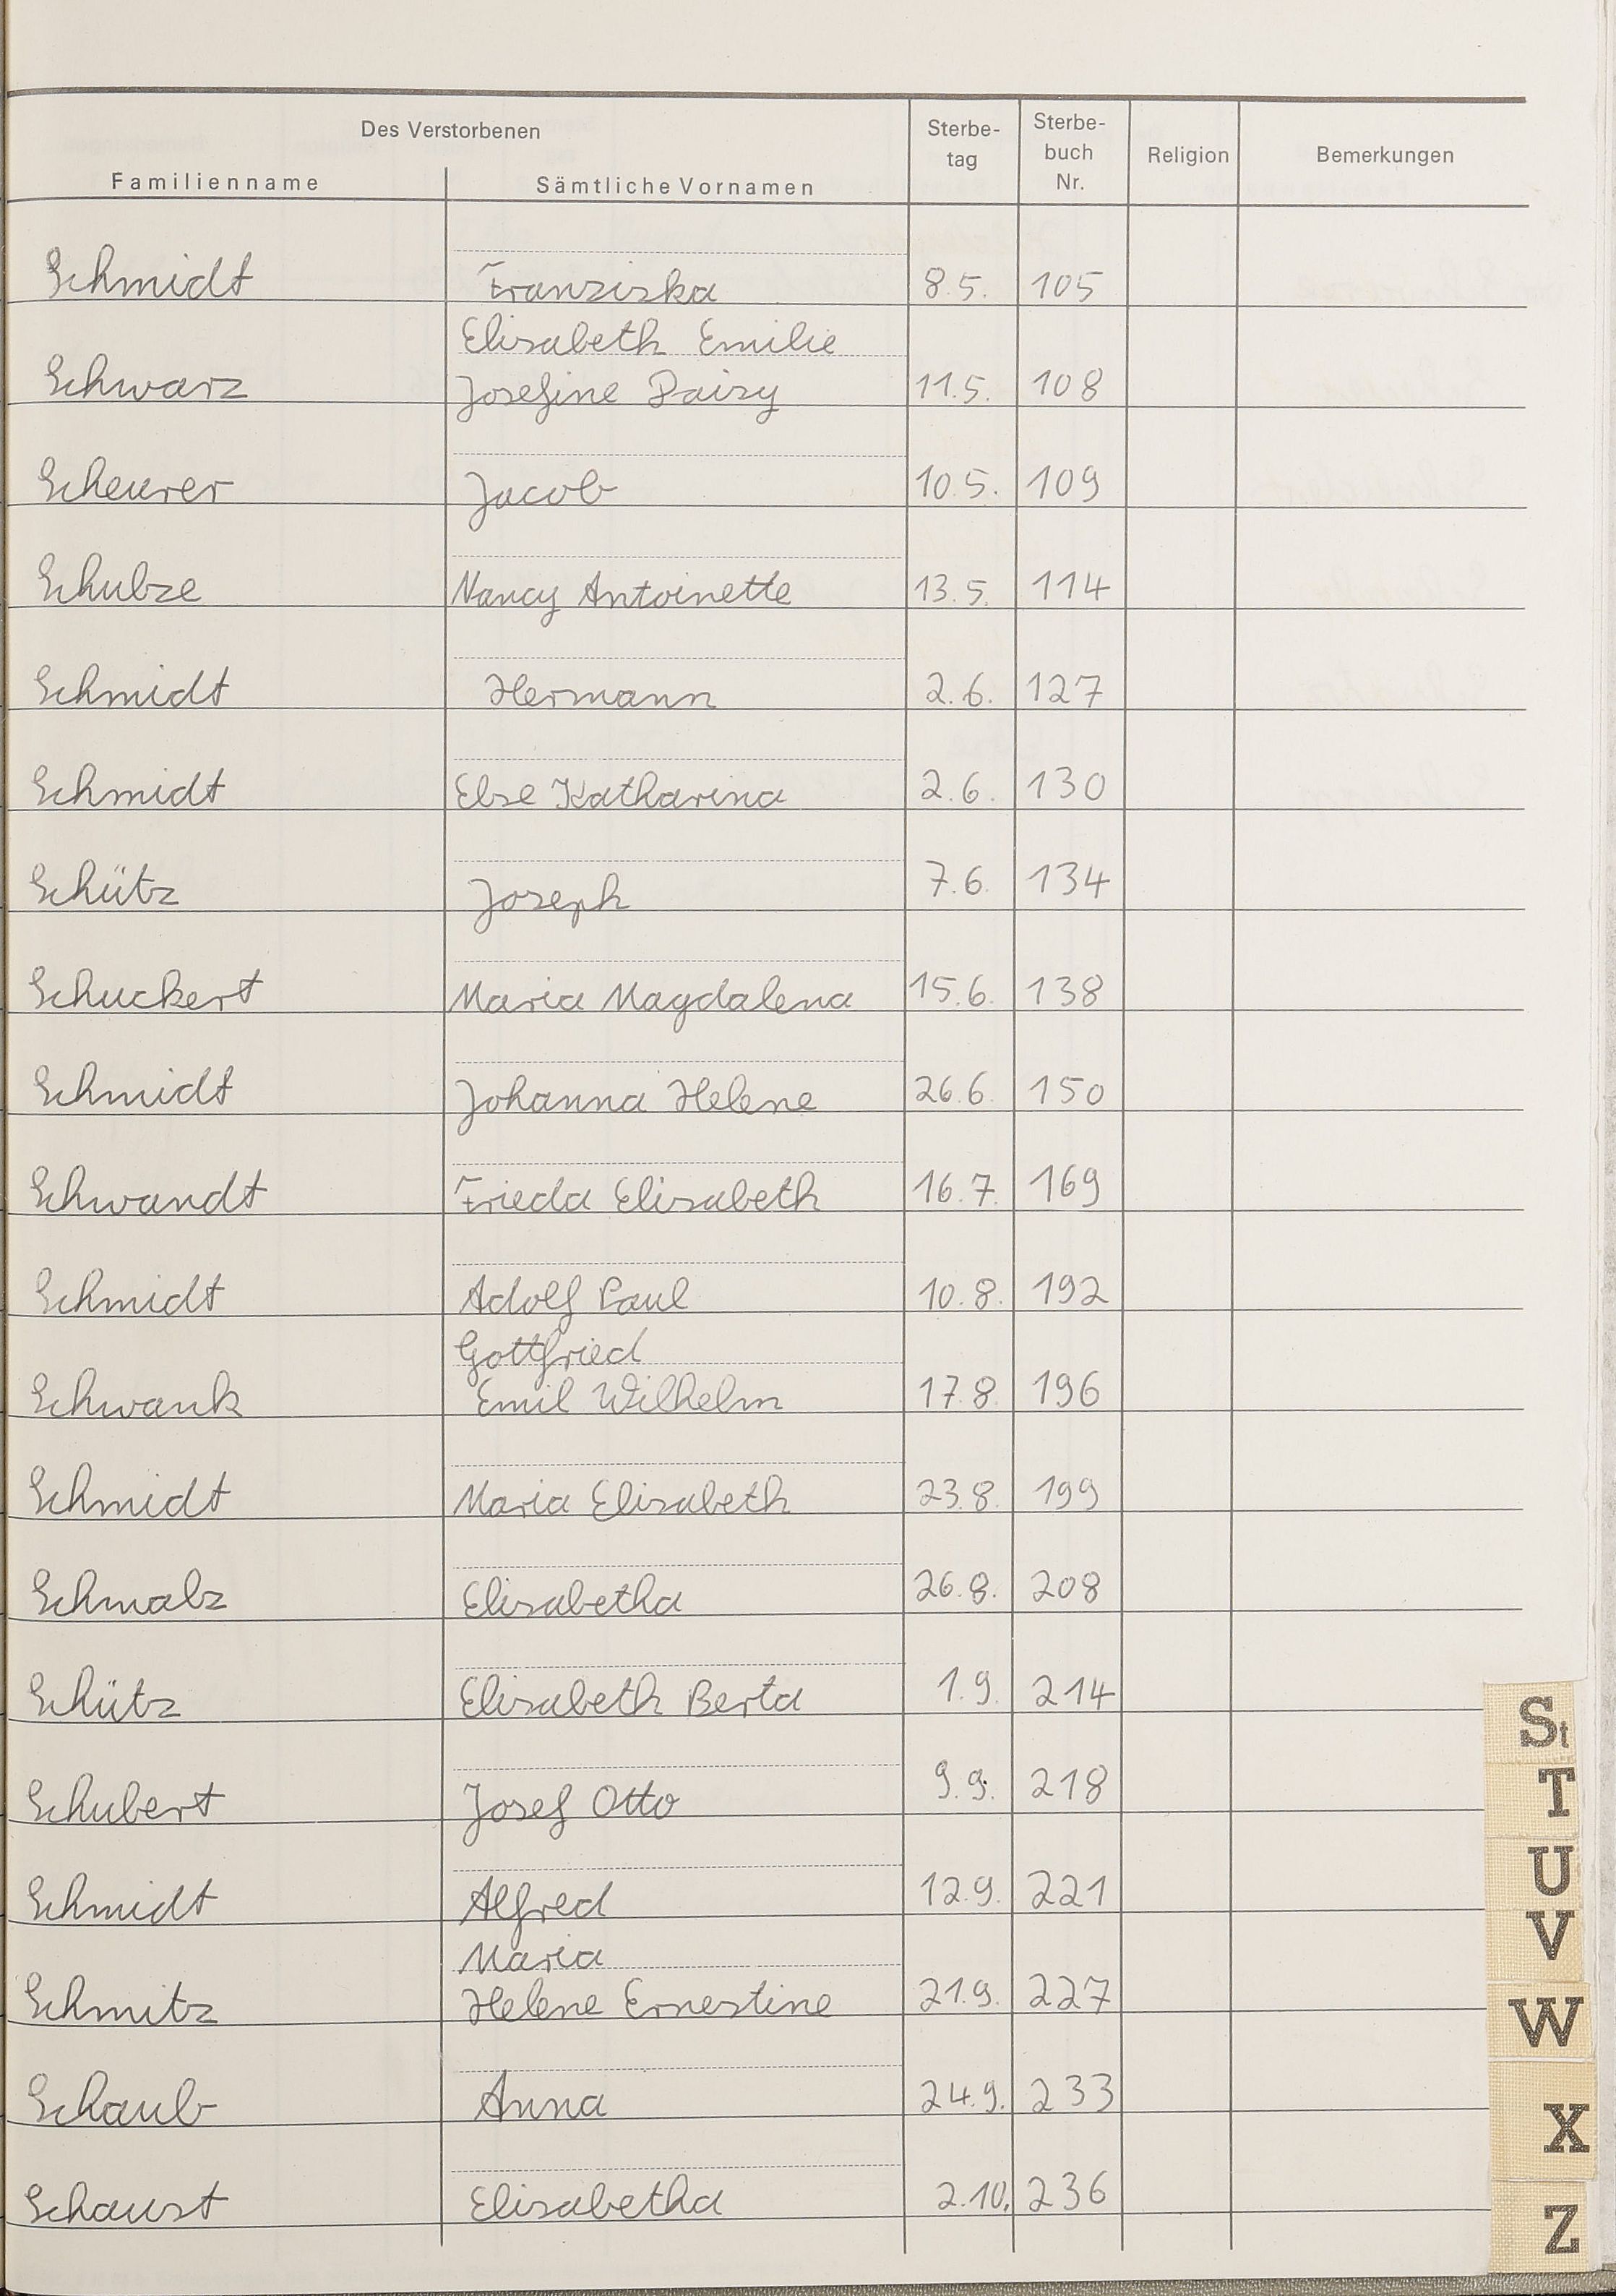 Des Verstorbenen
Familienname Sämtliche Vornamen Sterbe-
tag Sterbe-
buch
Nr. Religion Bemerkungen
Schmidt Franziska 8.5. 105
Elisabeth Emilie
Schwarz Josefine Daisy 11.5. 108
Scheurer Jacob 10.5. 109
Schulze Nancy Antoinette 13.5. 114
Schmidt Hermann 2.6. 127
Schmidt Else Katharina 2.6. 130
Schütz Joseph 7.6. 134
Schuckert Maria Magdalena 15.6. 138
Schmidt Johanna Helene 26.6. 150
Schwandt Frieda Elisabeth 16.7. 169
Schmidt Adolf Paul 10.8. 192
Gottfried
Schwank Emil Wilhelm 17.8. 196
Schmidt Maria Elisabeth 23.8. 199
Schmalz Elisabetha 26.8. 208
Schütz Elisabeth Berta 1.9. 214
Schubert Josef Otto 9.9. 218
Schmidt Alfred 12.9. 221
Maria
Schmitz Helene Ernestine 21.9. 227
Schaub Anna 24.9. 233
Schaust Elisabetha 2.10. 236
St
T
U
V
W
X
Z